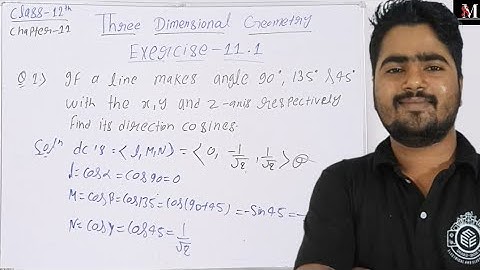 Class-12th
Chapter-11
Three Dimensional Geometry
Exercise-11.1
Q1) If a line makes angle 90°, 135° & 45°
with the x, y and z-axis respectively
find its direction cosines.
Solⁿ dc's = <l, M, N> = <0, -1/√2, 1/√2>
l = cosα = cos90 = 0
M = cosβ = cos135 = cos(90+45) = -sin45 = -
N = cosγ = cos45 = 1/√2
M